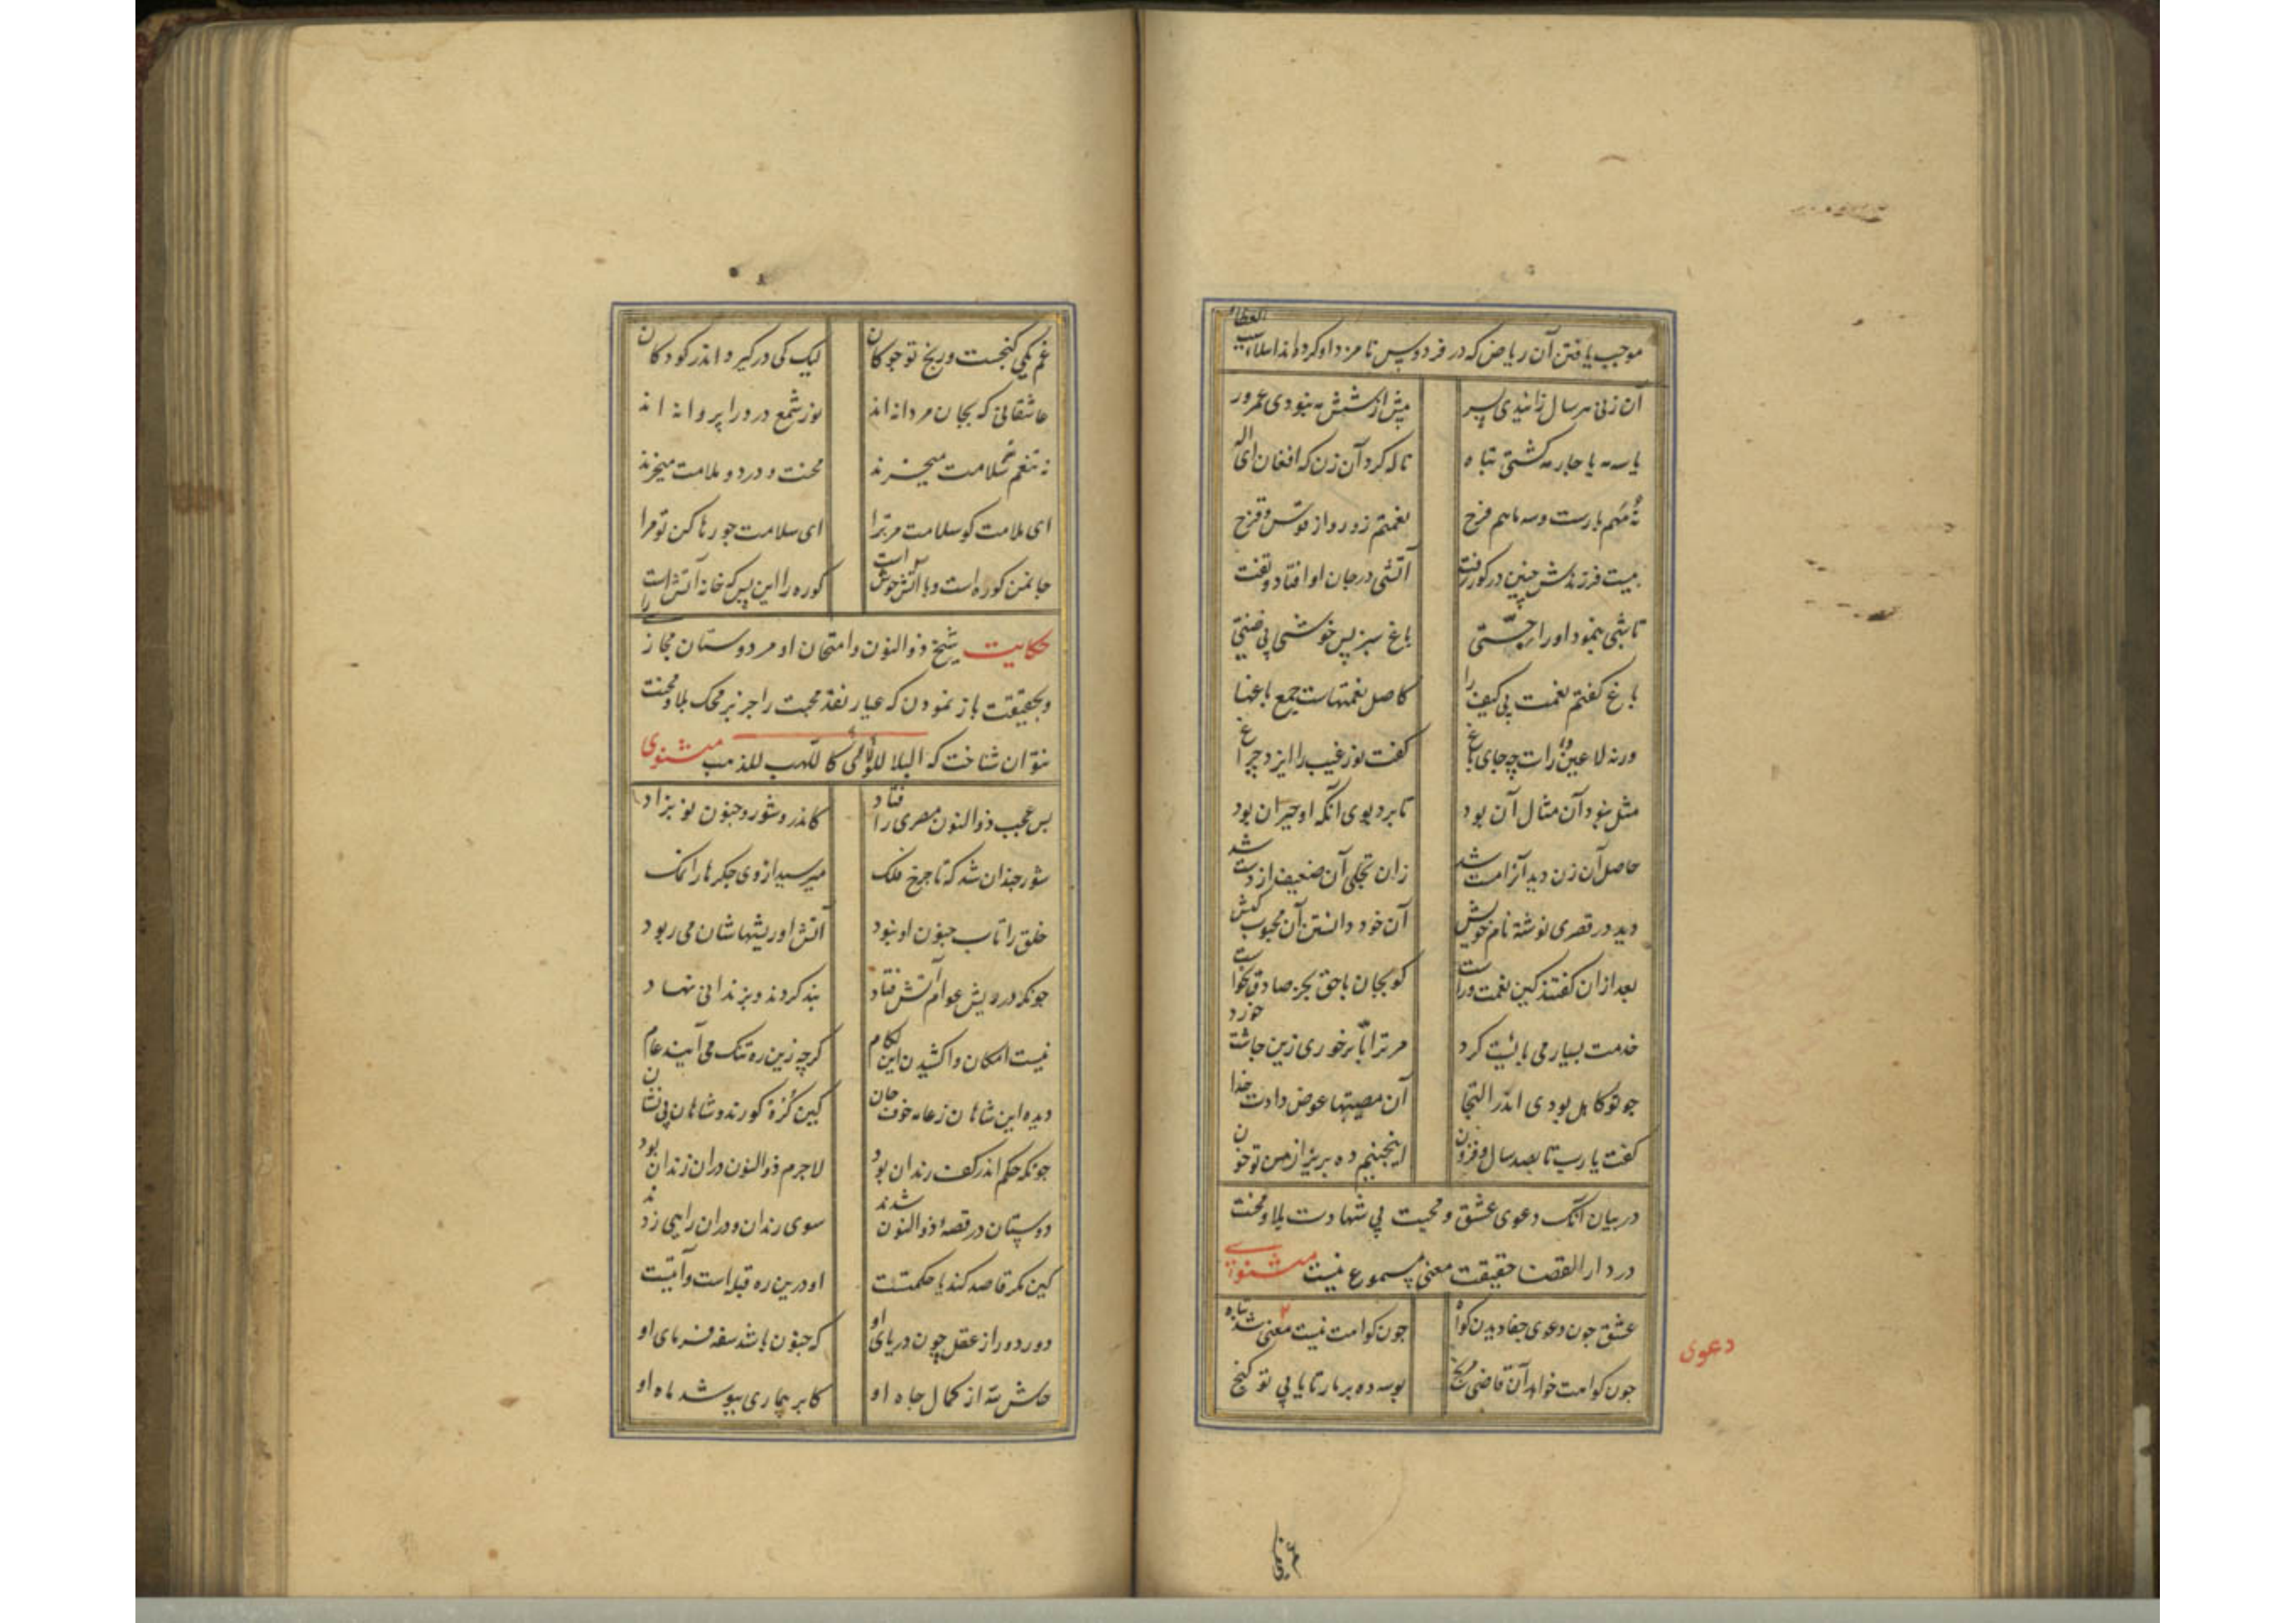 العطاء
موجب یافتن آن ریاض که در فردوس نامزد او کرده‌اند
آن زنی هر سال زائیدی پسر بیش از شش مه نبودی عمرور
یا سه مه یا چار مه گشتی تباه ناله کرد آن زن که افغان ای اله
نه مهم بارست و سه ماهم فرح نعمتم زوروتر از قوس و قزح
بیست فرزندش چنین در گور رفت آتشی در جان او افتاد و تفت
تا شبی بنمود او را جنتی باغ سبزیس خوشی بی ضنتی
باغ گفتم نعمت بی کیف را کاصل نعمتهاست جمع باغها
ورنه لا عین رات چه جای باغ گفت نور غیب را ایزد چراغ
مثل نبود آن مثال آن بود تا برد بوی آنکه او حیران بود
حاصل آن زن دید آنرا مست شد زان تجلی آن ضعیف از دست شد
دید در قصری نوشته نام خویش آن خود دانستن آن محبوب کیش
بعد از ان گفتند کین نعمت وراست کو بجان با حق بجز صادق نخواست
خدمت بسیار می بایست کرد مر ترا تا بر خوری زین چاشت خورد
چو تو کاهل بودی اندر التجا آن مصیبتها عوض دادت خدا
گفت یا رب تا بصد سال و فزون اینچنینم ده بریز از من تو خون
در بیان آنک دعوی عشق و محبت بی شهادت بلا و محنت
در دار القضا حقیقت معنی مسموع نیست مثنوی
عشق چون دعوی جفا دیدن گواه چون گواهت نیست معنی شد تباه
دعوی
چون گواهت خواهد آن قاضی مرنج بوسه ده بر مار تا یابی تو گنج
غم یکی گنجست و رنج تو چو کان لیک کی در گیرد اندر کودکان
عاشقانی که بجان مردانه اند نور شمع درد را پروانه اند
نه تنعم نه سلامت میخرند محنت و درد و ملامت میخرند
ای ملامت گو سلامت مر ترا ای سلامت جو رها کن تو مرا
جان من کوره است و با آتش خوش است کوره را این بس که خانه آتش است
حکایت شیخ ذوالنون و امتحان او مر دوستان مجاز را
و بحقیقت باز نمودن که عیار نقد محبت را جز بر محک بلا و محنت
نتوان شناخت که البلا للولا کاللهب للذهب مثنوی
بس عجب ذوالنون مصری را فتاد کاندرو شور و جنون نو بزاد
شور چندان شد که تا چرخ فلک میرسید از وی جگرها را نمک
خلق را تاب جنون او نبود آتش او ریشهاشان می ربود
چونکه در ریش عوام آتش فتاد بند کردند و بزندانی نهاد
نیست امکان واکشیدن این لگام گرچه زین ره تنگ می آیند عام
دیده این شاهان ز عامه خوف جان کین گره کورند و شاهان بی نشان
چونکه حکم اندر کف رندان بود لاجرم ذوالنون در ان زندان بود
دوستان در قصه ذوالنون شدند سوی زندان و در ان رایی زدند
کین مگر قاصد کند یا حکمتست او درین ره قبله است و آیتیست
دور دور از عقل چون دریای او که جنون باشد سفه فرمای او
حاش لله از کمال جاه او کابر بیماری بپوشد ماه او